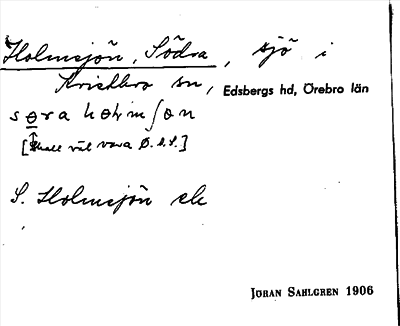 Holmsjön, Södra, sjö i
Kvistbro sn, Edsbergs hd, Örebro län
søra hɵlmʃøn
[Skall väl vara Ø. D.S.]
S. Holmsjön ek
JÖRAN SAHLGREN 1906